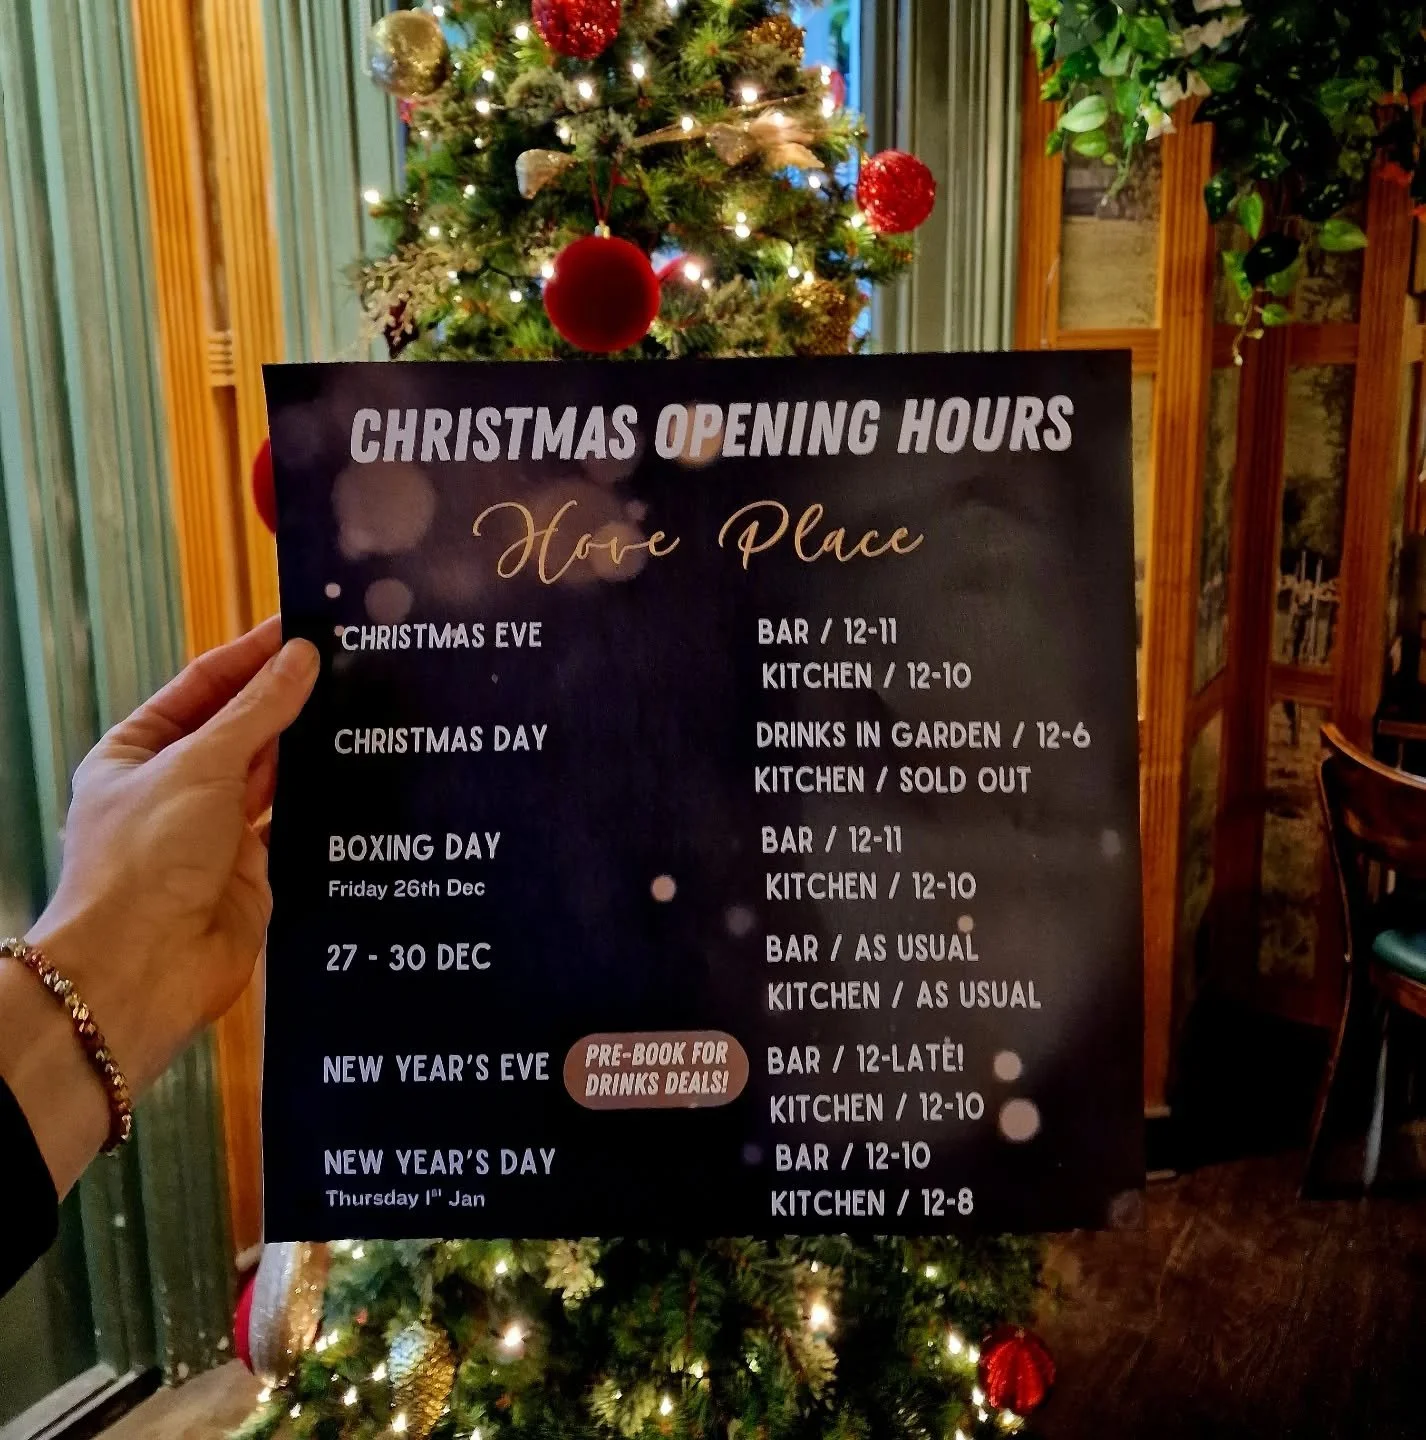 CHRISTMAS OPENING HOURS
Hove Place
CHRISTMAS EVE
BAR / 12-11
KITCHEN / 12-10
CHRISTMAS DAY
DRINKS IN GARDEN / 12-6
KITCHEN / SOLD OUT
BOXING DAY
Friday 26th Dec
BAR / 12-11
KITCHEN / 12-10
27 - 30 DEC
BAR / AS USUAL
KITCHEN / AS USUAL
NEW YEAR'S EVE
PRE-BOOK FOR
DRINKS DEALS!
BAR / 12-LATE!
KITCHEN / 12-10
NEW YEAR'S DAY
Thursday 1st Jan
BAR / 12-10
KITCHEN / 12-8